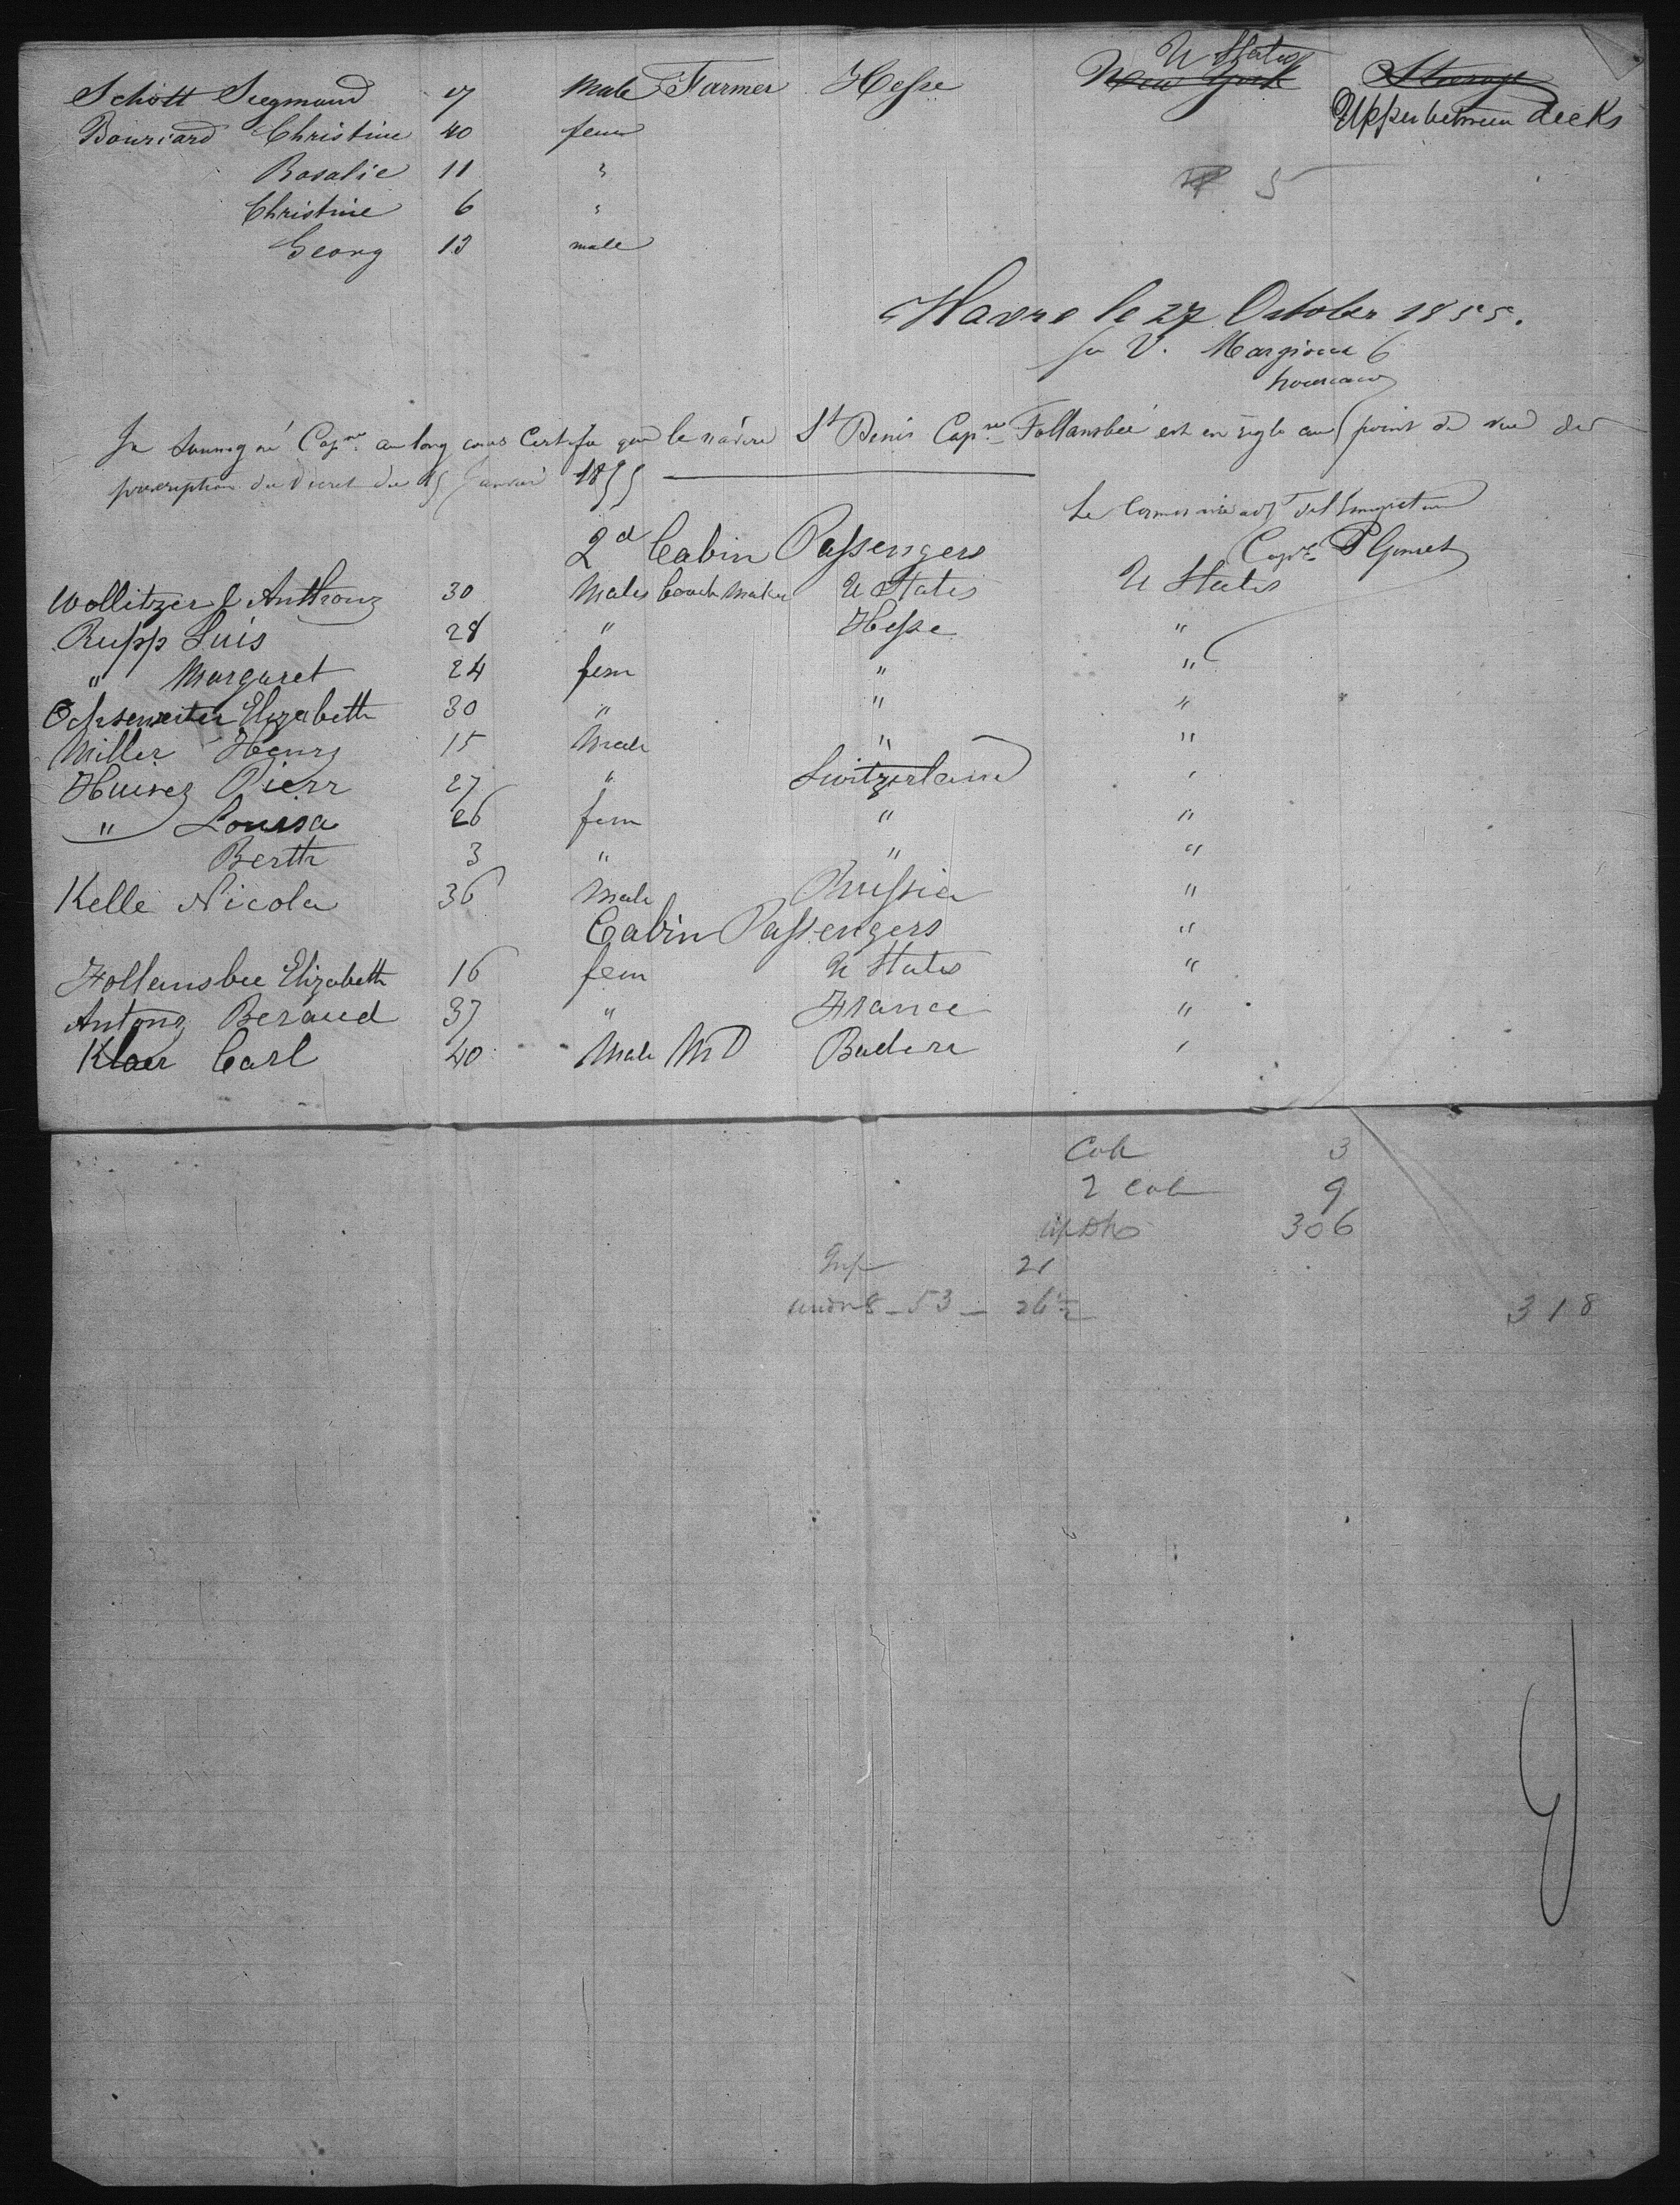 Schott Siegmund 17 Male Farmer Hesse U States New York Steerage
Bouriard Christine 40 fem Upper between decks
Rosalie 11 "
Christine 6 " 5
Georg 13 male
Havre le 27 October 1855.
V.
Je soussigné Capne au long cours Certifie que le navire St Denis Capne Follansbée est en règle au point de vue des
prescriptions du Décret du 15 Janvier 1855
Le Commissaire de l'Emigration
2d Cabin Passengers Capne
Wollitzer & Anthony 30 Males Coach Maker U States U States
Rupp Luis 28 " Hesse "
" Margaret 24 fem " "
Elizabeth 30 " " "
Miller Henry 15 Male " "
Pierr 27 " Switzerland "
" Louisa 26 fem " "
Berth 3 " " "
Kelle Nicola 36 Male "
Cabin Passengers "
Follansbee Elizabeth 16 fem U States "
Antony Beraud 37 " France "
Klaer Carl 40 Male MD Baden "
Cab 3
2 Cab 9
306
Inf 21
under 8 - 53 - 26½ 318